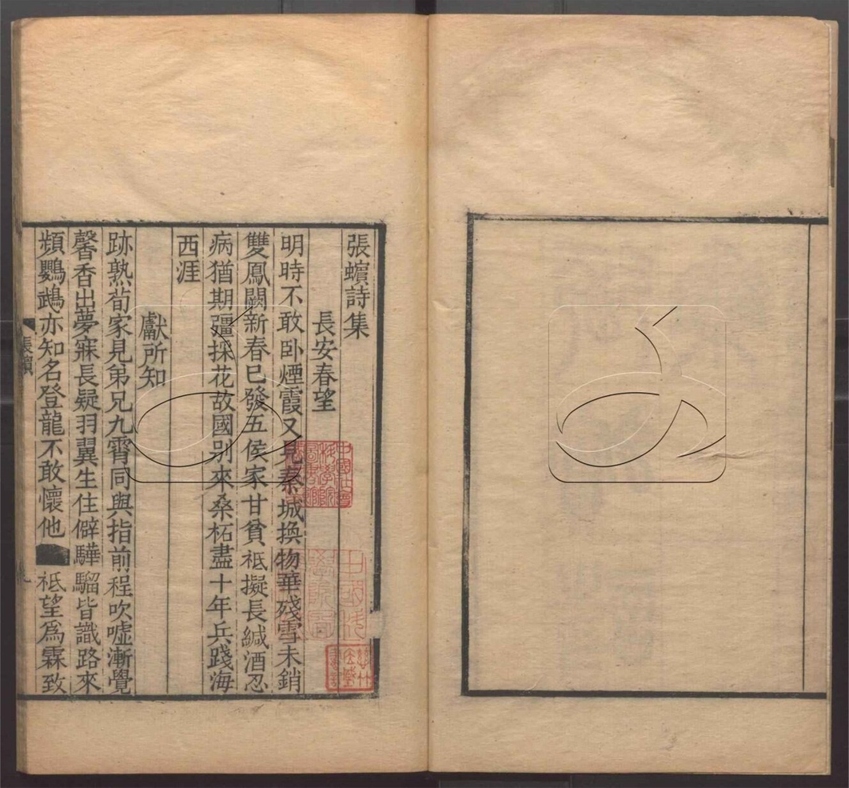 張蠙詩集
長安春望
明時不敢卧煙霞又見秦城換物華殘雪未銷
雙鳳闕新春已發五侯家甘貧祗擬長緘酒忍
病猶期彊採花故國別來桑柘盡十年兵踐海
西涯
獻所知
跡熟荀家見弟兄九霄同與指前程吹噓漸覺
馨香出夢寐長疑羽翼生住僻驊騮皆識路來
頻鸚鵡亦知名登龍不敢懷他祗望為霖致